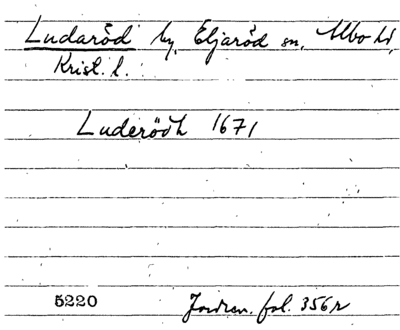 Ludaröd by, Eljaröd sn, Albo hd,
Krist. l.
Luderödh 1671
5220 Jordrev. fol. 356 r